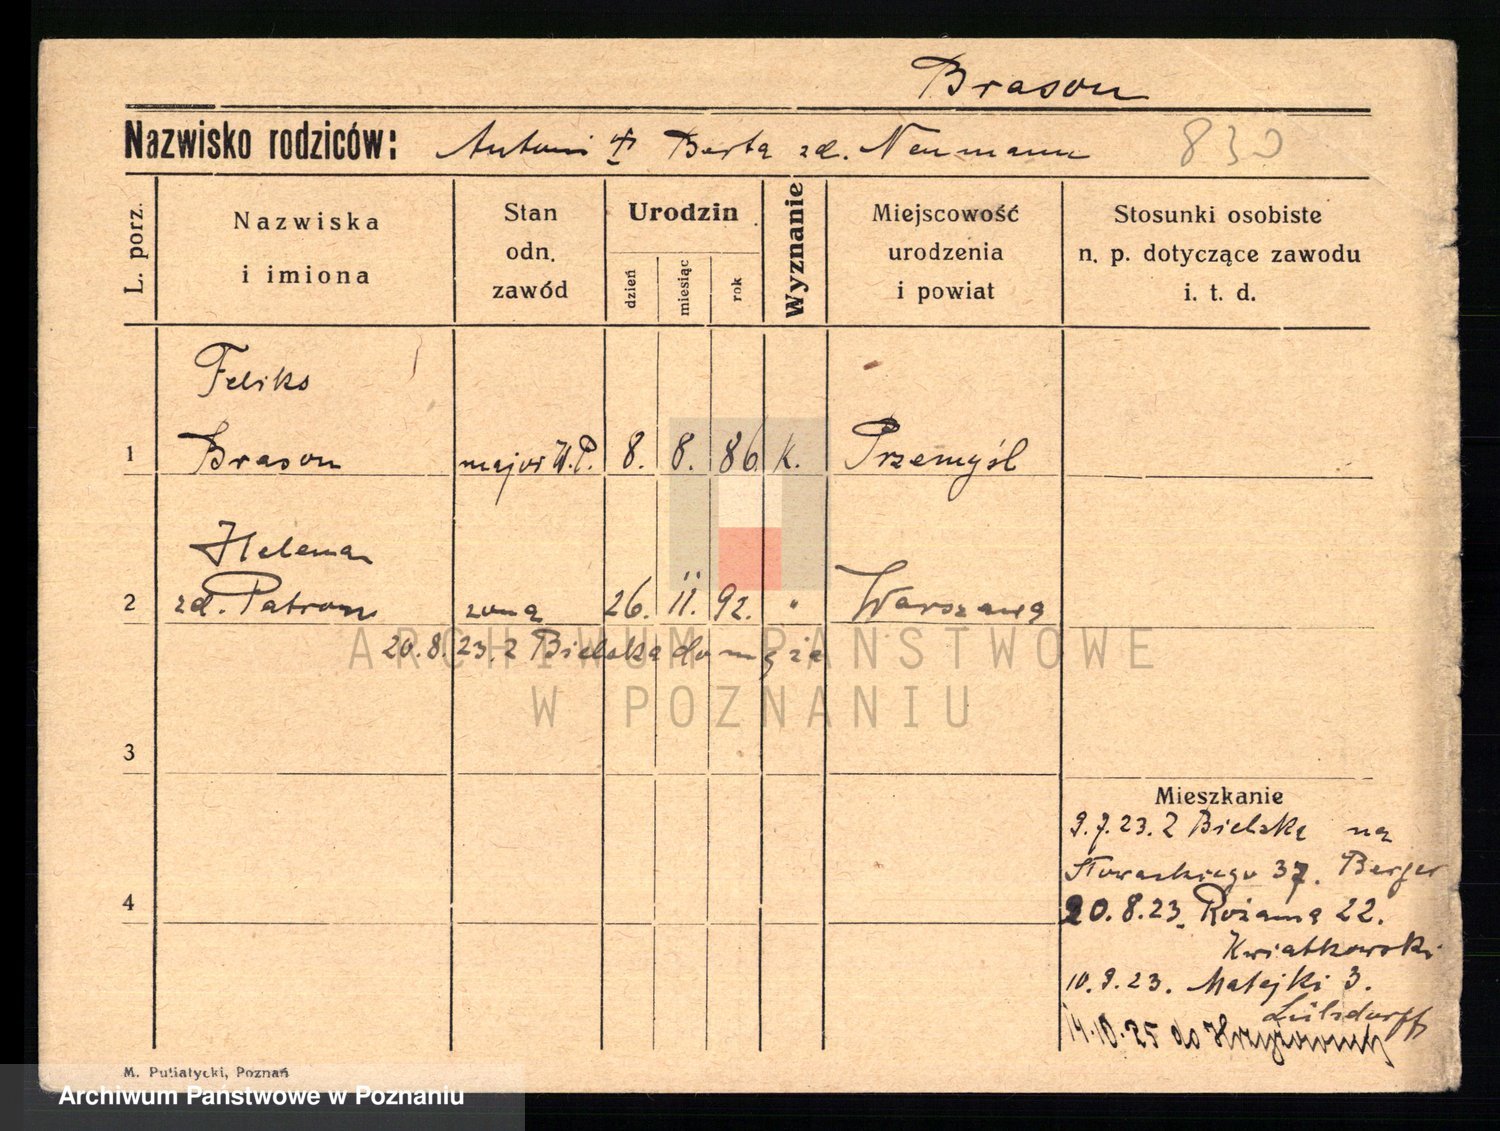 Brason
Nazwisko rodziców: Antoni Berta zd. Neumann 830
L. porz.
Nazwiska
i imiona
Stan
odn.
zawód
Urodzin
dzień
miesiąc
rok
Wyznanie
Miejscowość
urodzenia
i powiat
Stosunki osobiste
n. p. dotyczące zawodu
i. t. d.
Feliks
1 Brason major W.P. 8. 8. 86 k. Przemyśl
Helena
2 zd. Patron żona 26. II. 92. " Warszawa
20.8.23. z Bielska do męża
3
Mieszkanie
9.7.23. z Bielska na
Słowackiego 37. Berger
4
20.8.23. Różana 22.
Kwiatkowski
10.9.23. Matejki 3.
Lülsdorff
14.10.25 do
M. Putiatycki, Poznań
ARCHIWUM PAŃSTWOWE
W POZNANIU
Archiwum Państwowe w Poznaniu